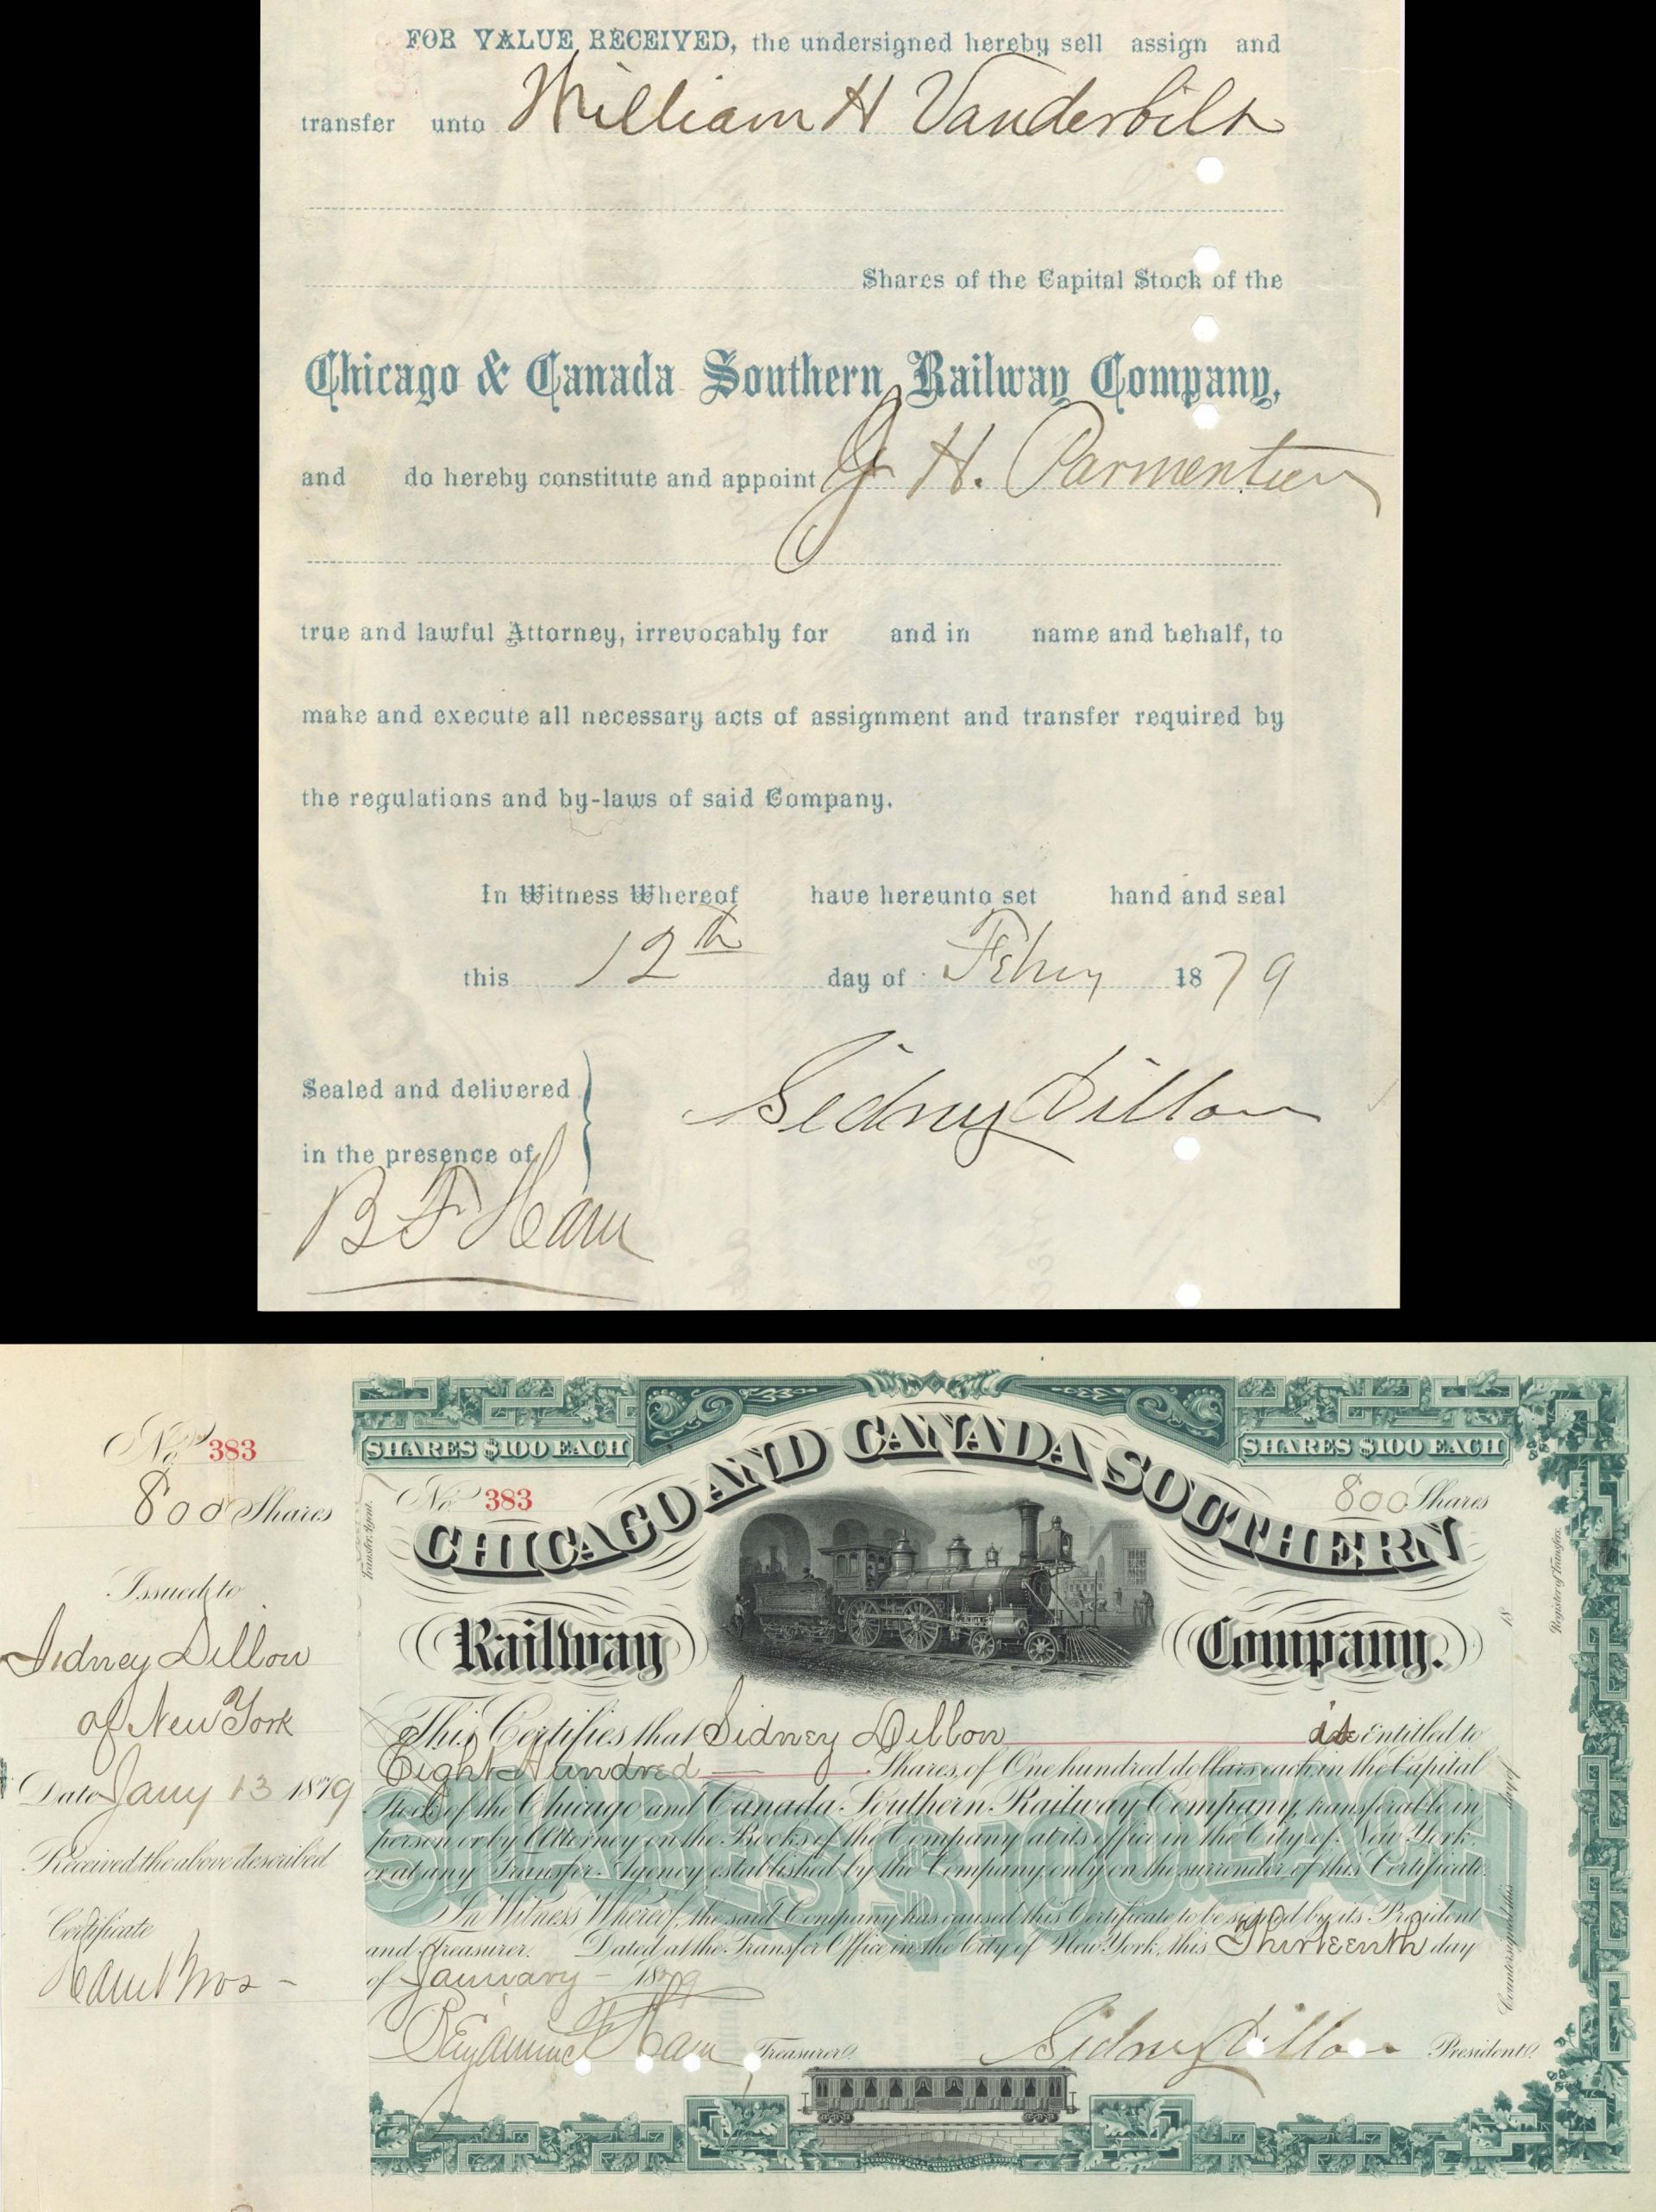 FOR VALUE RECEIVED, the undersigned hereby sell assign and
transfer unto William H Vanderbilt
Shares of the Capital Stock of the
Chicago & Canada Southern Railway Company,
and do hereby constitute and appoint J H. Parmentier
true and lawful Attorney, irrevocably for and in name and behalf, to
make and execute all necessary acts of assignment and transfer required by
the regulations and by-laws of said Company.
In Witness Whereof have hereunto set hand and seal
this 12th day of Febry 1879
Sealed and delivered
in the presence of
Sidney Dillon
B F Ham
No 383
800 Shares
Issued to
Sidney Dillon
of New York
Date Jany 13 1879
Received the above described
Certificate
SHARES $100 EACH
SHARES $100 EACH
No 383
800 Shares
CHICAGO AND CANADA SOUTHERN
Railway Company.
This Certifies that Sidney Dillon is Entitled to
Eight Hundred Shares, of One hundred dollars each in the Capital
Stock of the Chicago and Canada Southern Railway Company, transferable in
person or by Attorney on the Books of the Company at its office in the City of New York,
or at any Transfer Agency established by the Company, only on the surrender of this Certificate.
SHARES $100 EACH
In Witness Whereof, the said Company has caused this Certificate to be signed by its President
and Treasurer. Dated at the Transfer Office in the City of New York, this Thirteenth day
of January 1879
Benjamin F Ham Treasurer.
Sidney Dillon President.
Transfer Agent.
Countersigned this day of 18
Register of Transfers.